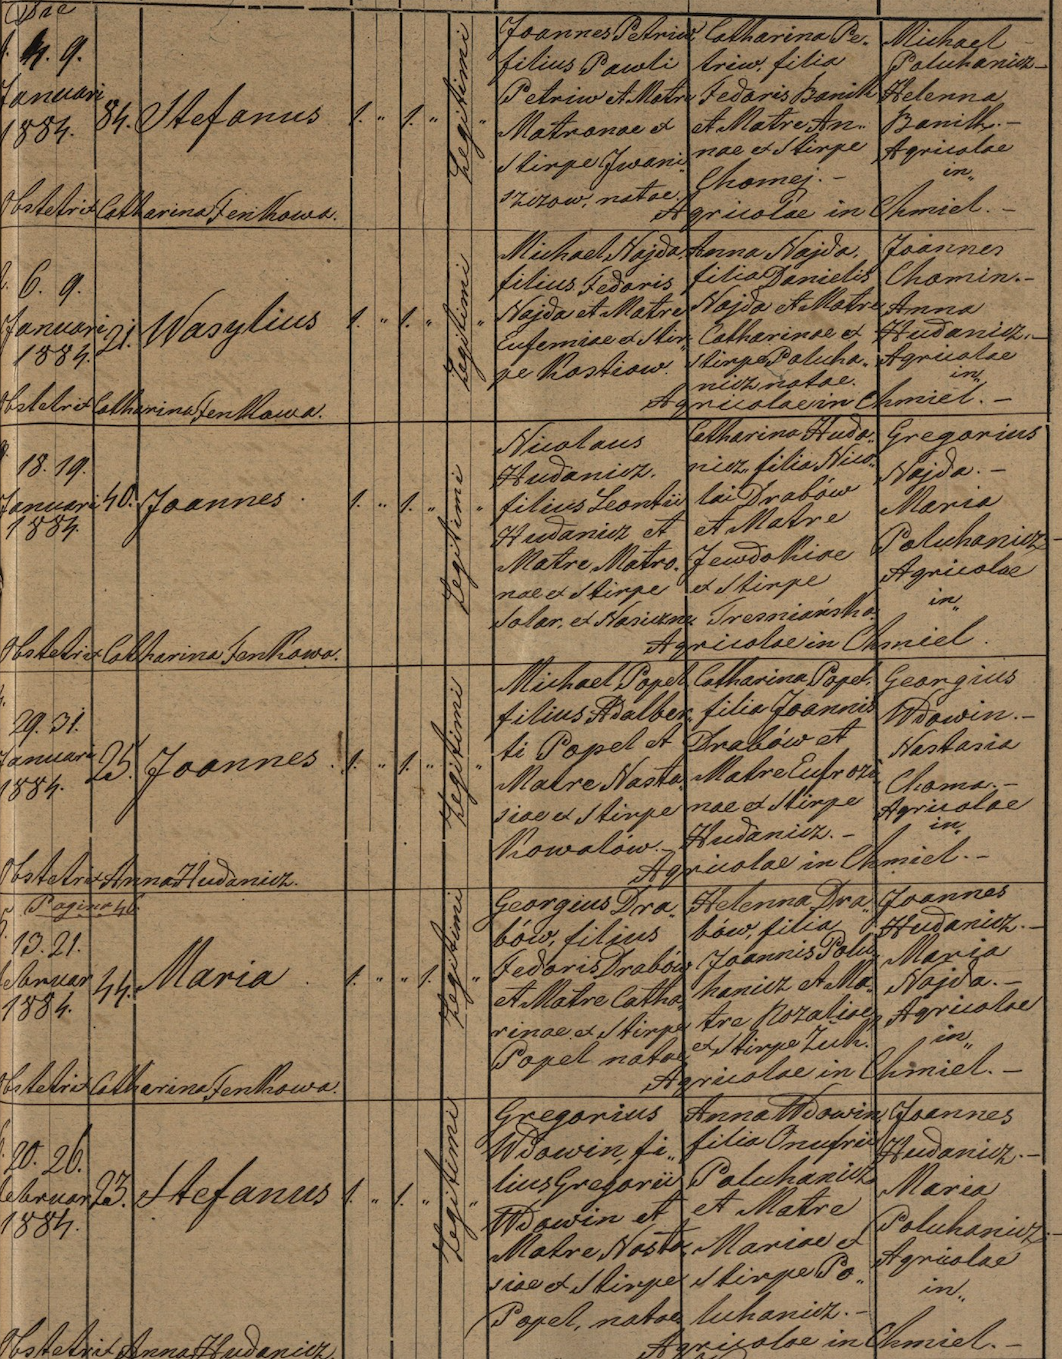 4. 9.
Januari
1884.
84.
Stefanus
1. " 1. " "
Legitimi
Joannes Petriw
filius Pawli
Petriw et Matre
Matronae ex
Stirpe Jwani-
szizow, natae.
Catharina Pe-
triw, filia
Fedoris Banik
et Matre An-
nae ex Stirpe
Chomej. -
Michael
Poluhanicz -
Helenna
Banik. -
Agricolae
in
Agricolae in Chmiel. -
Obstetrix Catharina Fenkowa.
6. 9.
Januari
1884.
21.
Wasylius
1. " 1. " "
Legitimi
Michael Najda,
filius Fedoris
Najda et Matre
Eufemiae ex Stir-
pe Kostiow.
Anna Najda,
filia Danielis
Najda et Matre
Catharinae ex
Stirpe Poluha-
nicz natae.
Joannes
Chomin. -
Anna
Hudanicz. -
Agricolae
in
Agricolae in Chmiel. -
Obstetrix Catharina Fenkowa.
18. 19.
Januari
1884.
40.
Joannes
1. " 1. " "
Legitimi
Nicolaus
Hudanicz.
filius Leontii
Hudanicz et
Matre Matro-
nae ex Stirpe
Solar. ex
Catharina Huda-
nicz, filia Nico-
lai Drabów
et Matre
Jewdokiae
ex Stirpe
Tresniańska.
Gregorius
Najda. -
Maria
Poluhanicz -
Agricolae
in
Agricolae in Chmiel.
Obstetrix Catharina Fenkowa.
29. 31.
Januari
1884.
25.
Joannes
1. " 1. " "
Legitimi
Michael Popel,
filius Adalber-
ti Popel et
Matre Nasta-
siae ex Stirpe
Kowalów. -
Catharina Popel,
filia Joannis
Drabów et
Matre Eufrozi-
nae ex Stirpe
Hudanicz. -
Georgius
Wdowin. -
Nastasia
Choma. -
Agricolae
in
Agricolae in Chmiel. -
Obstetrix Anna Hudanicz.
Pagina 46.
13. 21.
Februar
1884.
44.
Maria
1. " " 1. "
Legitimi
Georgius Dra-
bów, filius
Fedoris Drabów
et Matre Catha-
rinae ex Stirpe
Popel natae
Helenna Dra-
bów, filia
Joannis Polu-
hanicz et Ma-
tre Rozaliae
ex Stirpe Zuk.
Joannes
Hudanicz. -
Maria
Najda. -
Agricolae
in
Agricolae in Chmiel. -
Obstetrix Catharina Fenkowa.
20. 26.
Februar
1884.
23.
Stefanus
1. " 1. " "
Legitimi
Gregorius
Wdowin, fi-
lius Gregorii
Wdowin et
Matre Nasta-
siae ex Stirpe
Popel, natae
Anna Wdowin
filia Onufrii
Poluhanicz
et Matre
Mariae ex
Stirpe Po-
luhanicz. -
Joannes
Hudanicz. -
Maria
Poluhanicz. -
Agricolae
in
Agricolae in Chmiel. -
Obstetrix Anna Hudanicz